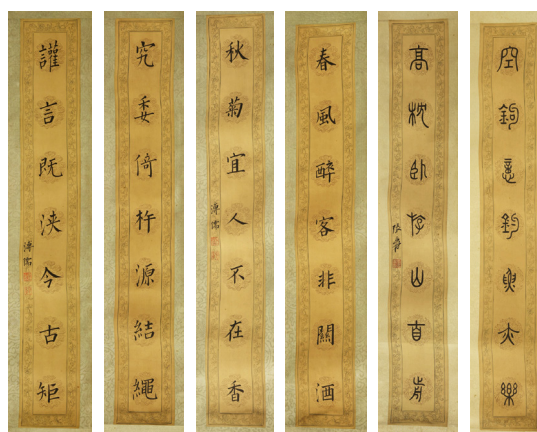 空鉤意釣魚亦樂
高枕卧游山自前
張爰
春風醉客非關酒
秋菊宜人不在香
溥儒
究委倚杵源結繩
謹言既浹今古矩
溥儒